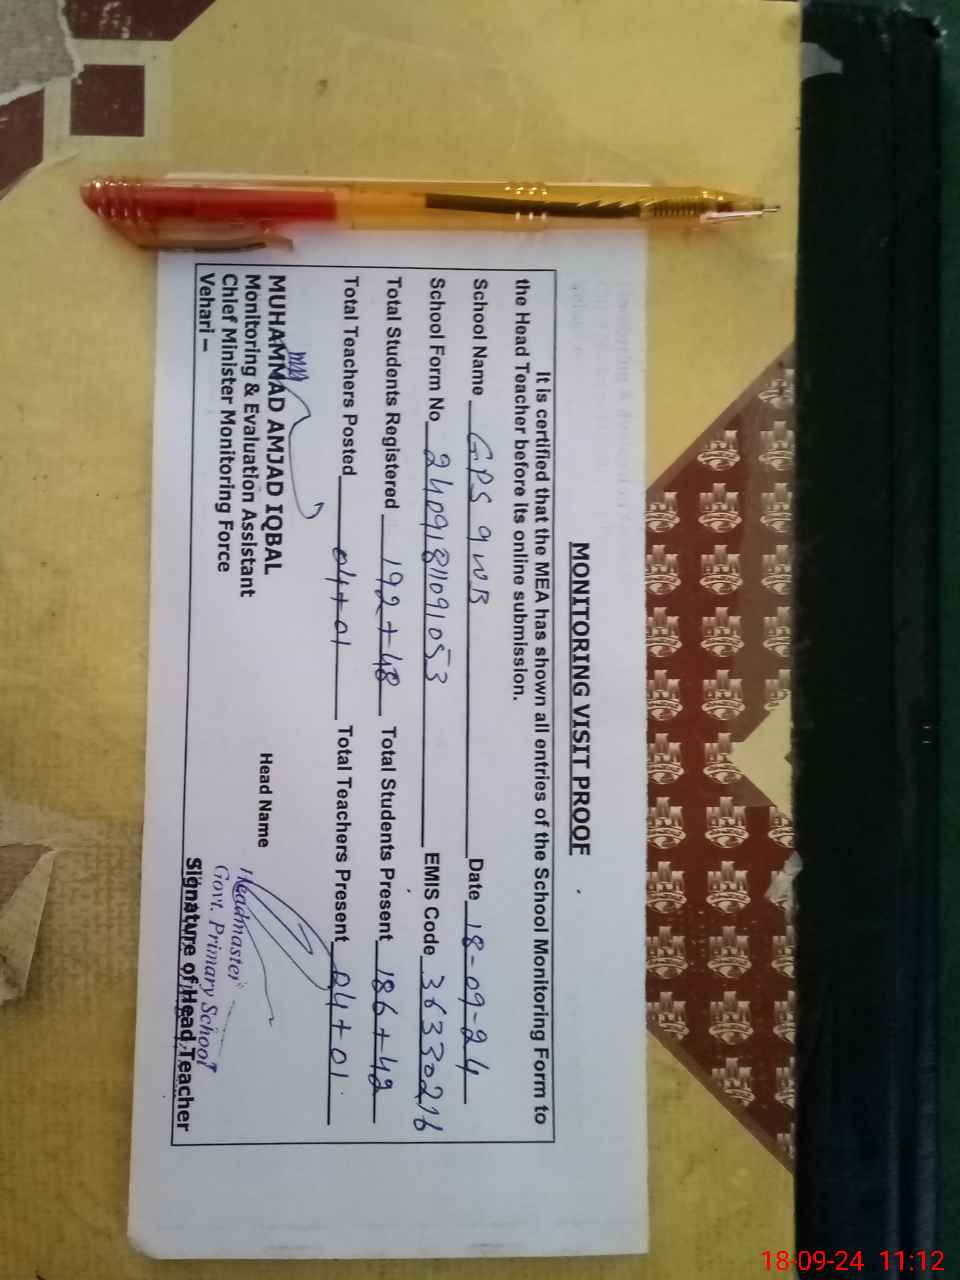 MONITORING VISIT PROOF
It is certified that the MEA has shown all entries of the School Monitoring Form to
the Head Teacher before its online submission.
School Name GPS 9 WB Date 18-09-24
School Form No 24091811091053 EMIS Code 36330216
Total Students Registered 192+48 Total Students Present 186+42
Total Teachers Posted 04+01 Total Teachers Present 04+01
MUHAMMAD AMJAD IQBAL
Monitoring & Evaluation Assistant
Chief Minister Monitoring Force
Vehari –
Head Name
Headmaster
Govt. Primary School
Signature of Head Teacher
18-09-24 11:12